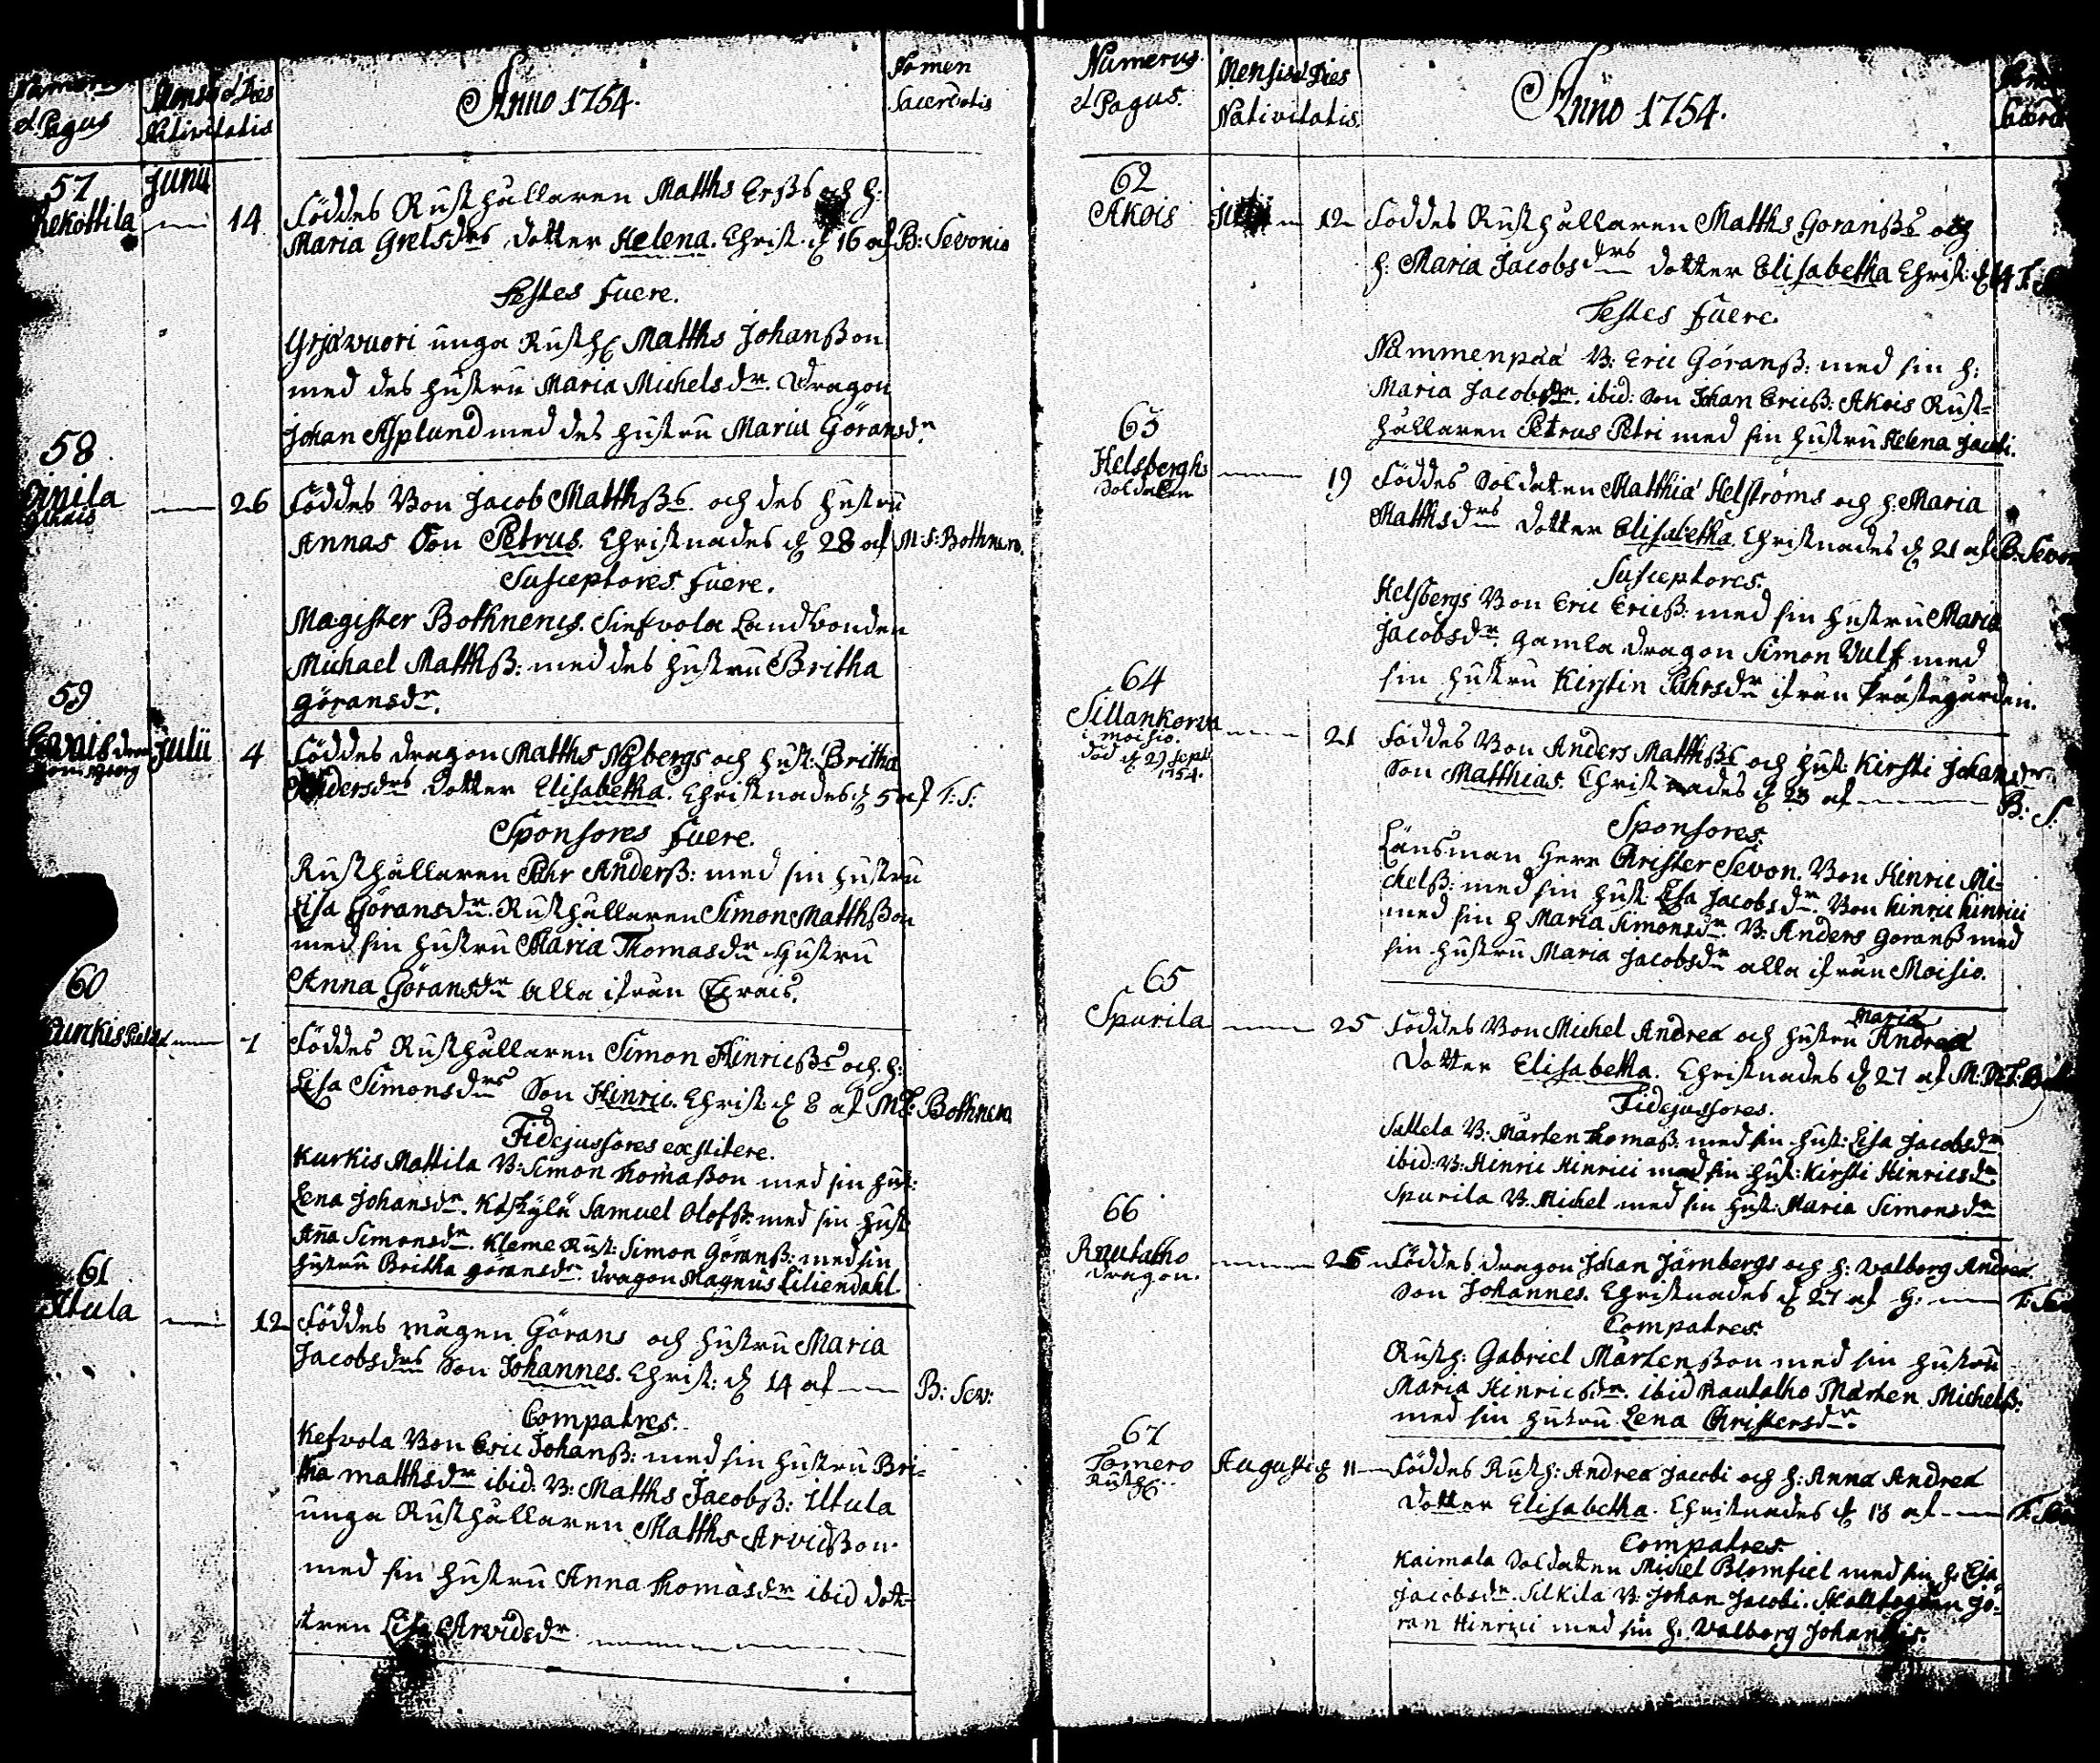 Numerus et Pagus
Mensis et Dies Nativitatis
Anno 1754.
Nomen Sacerdotis
57 Junii
Rekottila 14 Föddes Rusthållaren Matths Erßs och h:
Maria Grelsdrs dotter Helena. Christ. d 16 af B: Sevonio
Testes fuere.
Yrjävuori unga Rusth: Matths Johanßon
med des hustru Maria Michelsdr. Dragon
Johan Asplund med des hustru Maria Göransdr.
58
26 Föddes Bon Jacob Matthßs och des hustru
Annas Son Petrus. Christnades d 28 af M: J: Bothnero.
Susceptores fuere.
Magister Bothnerus. Siefvola Landbonden
Michael Matthß: med des hustru Britha
Göransdr.
59
Julii 4 Föddes dragon Matths Nybergs och hust: Britha
Andersdrs dotter Elisabetha. Christnades d 5 af T: S:
Sponsores fuere.
Rusthållaren Påhr Anderß: med sin hustru
Lisa Göransdr. Rusthållaren Simon Matthßon
med sin hustru Maria Thomasdr hustru
Anna Göransdr alla ifrån
60
7 Föddes Rusthållaren Simon Hinricßs och h:
Lisa Simonsdrs Son Hinric. Christ. d 8 af M: J: Bothnero
Fidejussores exstitere.
Kurkis Mattila B: Simon Thomaßon med sin hust:
Lena Johansdr. Samuel Olofß: med sin hust
Anna Simonsdr. Kleme Rust: Simon Göranß: med sin
hustru Britha Göransdr. dragon Magnus Liliendahl
61
Iltula 12 Föddes mågen Görans och hustru Maria
Jacobsdrs Son Johannes. Christ: d 14 af B: Sev:
Compatres.
Kefvola Bon Eric Johanß: med sin hustru Bri-
tha Matthsdr ibid: B: Matths Jacobß: Iltula
unga Rusthållaren Matths Arvidßon
med sin hustru Anna Thomasdr ibid dot-
tren Lisa Arvidsdr.
Numerus et Pagus.
Mensis et Dies Nativitatis.
Anno 1754.
62
Akois Julii 12 Föddes Rusthållaren Matths Göranßs och
h: Maria Jacobsdrs dotter Elisabetha Christ: d 14 T: S
Testes fuere.
Nammenpää B: Eric Göranß: med sin h:
Maria Jacobsdr. ibid: Son Johan Ericß: Akois Rust-
hållaren Petrus Petri med sin hustru Helena Jacobi.
63
Helsberghs Soldaten 19 Föddes Soldaten Matthiä Helströms och h: Maria
Matthsdrs dotter Elisabetha. Christnades d 21 af B: Sevon
Susceptores.
Helsbergs Bon Eric Ericß: med sin hustru Maria
Jacobsdr. Gamla dragon Simon Vulf med
sin hustru Kirstin Påhrsdr ifrån Prästegården.
64
Sillankorva i Moisio. död d 29 Sept 1754.
21 Föddes Bon Anders Matthßs och hust: Kirsti Johansdrs
Son Matthias. Christnades d 23 af B: S:
Sponsores.
Länsman Herr Christer Sevon. Bon Hinric Mi-
chelß: med sin hust Lisa Jacobsdr. Bon Hinric Hinrici
med sin h Maria Simonsdr. B: Anders Göranß med
sin hustru Maria Jacobsdr alla ifrån Moisio.
65
Spurila 25 Föddes Bon Michel Andreæ och hustru Maria Andreæ
dotter Elisabetha. Christnades d 27 af M:
Fidejussores.
Sattela B: Mårten Thomaß: med sin hust: Lisa Jacobsdr
ibid: B: Hinric Hinrici med sin hust: Kirsti Hinricsdr
Spurila B: Michel med sin hust: Maria Simonsdr
66
Rautalho dragon. 26 Föddes dragon Johan Järnbergs och h: Valborg Andreæ
Son Johannes. Christnades d 27 af H: T: Sev
Compatres.
Rusth: Gabriel Mårtenßon med sin hustru
Maria Hinricsdr. ibid Rautalho Mårten Michelß:
med sin hustru Lena Christersdr.
67
Tomero Rusth: Augusti d 11 Föddes Rusth: Andreæ Jacobi och h: Anna Andreæ
dotter Elisabetha. Christnades d 18 af T: Sev
Compatres.
Kaimala Soldaten Michel Blomfiel med sin h: Lisa
Jacobsdr. Silkila B: Johan Jacobi. Jö-
ran Hinrici med sin h: Valborg Johannis.